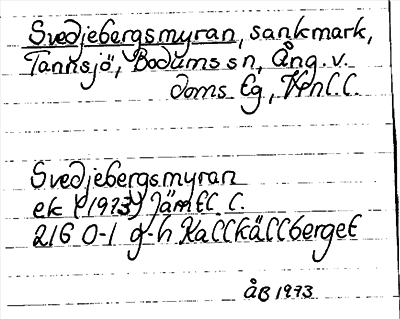 Svedjebergsmyran, sankmark,
Tannsjö, Bodums sn, Ång. v.
doms lg, Vnl. l.
Svedjebergsmyran
ek (1973) Jämtl. l.
216 0-1 g-h Kallkällberget
ÅB 1973